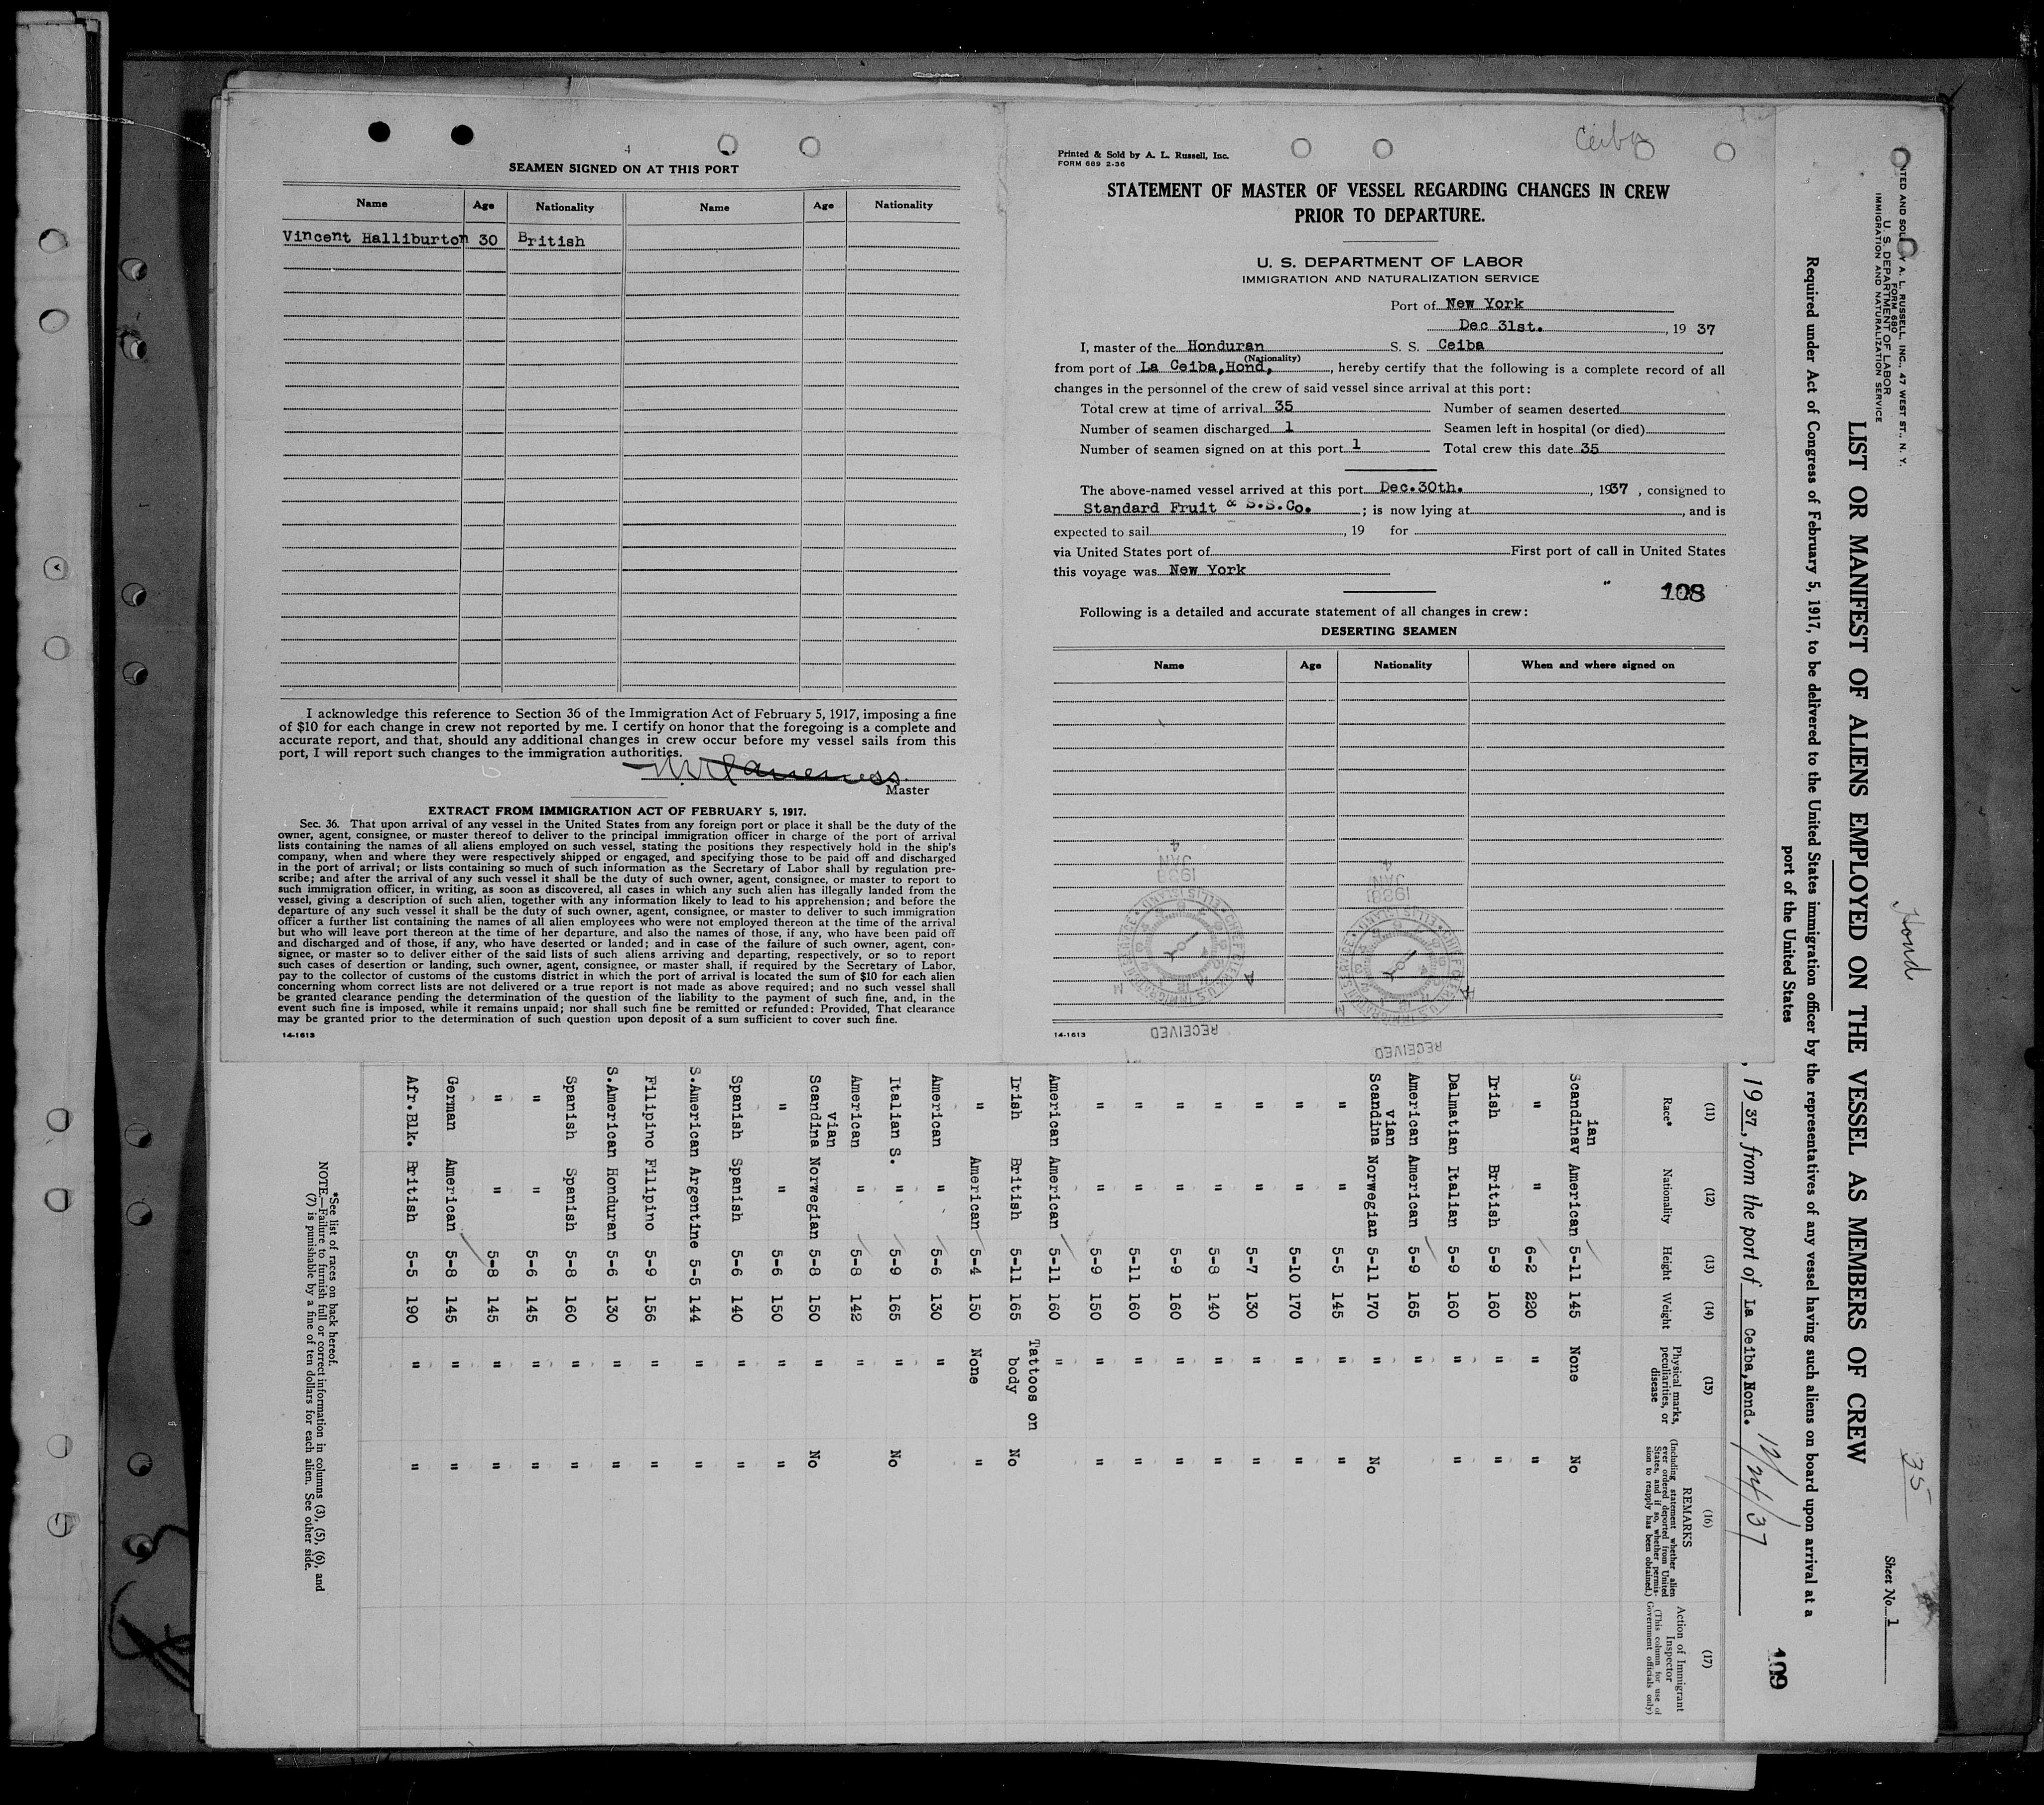 4
SEAMEN SIGNED ON AT THIS PORT
Name Age Nationality Name Age Nationality
Vincent Halliburton 30 British
I acknowledge this reference to Section 36 of the Immigration Act of February 5, 1917, imposing a fine
of $10 for each change in crew not reported by me. I certify on honor that the foregoing is a complete and
accurate report, and that, should any additional changes in crew occur before my vessel sails from this
port, I will report such changes to the immigration authorities.
Master
EXTRACT FROM IMMIGRATION ACT OF FEBRUARY 5, 1917.
Sec. 36. That upon arrival of any vessel in the United States from any foreign port or place it shall be the duty of the
owner, agent, consignee, or master thereof to deliver to the principal immigration officer in charge of the port of arrival
lists containing the names of all aliens employed on such vessel, stating the positions they respectively hold in the ship's
company, when and where they were respectively shipped or engaged, and specifying those to be paid off and discharged
in the port of arrival; or lists containing so much of such information as the Secretary of Labor shall by regulation pre-
scribe; and after the arrival of any such vessel it shall be the duty of such owner, agent, consignee, or master to report to
such immigration officer, in writing, as soon as discovered, all cases in which any such alien has illegally landed from the
vessel, giving a description of such alien, together with any information likely to lead to his apprehension; and before the
departure of any such vessel it shall be the duty of such owner, agent, consignee, or master to deliver to such immigration
officer a further list containing the names of all alien employees who were not employed thereon at the time of the arrival
but who will leave port thereon at the time of her departure, and also the names of those, if any, who have been paid off
and discharged and of those, if any, who have deserted or landed; and in case of the failure of such owner, agent, con-
signee, or master so to deliver either of the said lists of such aliens arriving and departing, respectively, or so to report
such cases of desertion or landing, such owner, agent, consignee, or master shall, if required by the Secretary of Labor,
pay to the collector of customs of the customs district in which the port of arrival is located the sum of $10 for each alien
concerning whom correct lists are not delivered or a true report is not made as above required; and no such vessel shall
be granted clearance pending the determination of the question of the liability to the payment of such fine, and, in the
event such fine is imposed, while it remains unpaid; nor shall such fine be remitted or refunded: Provided, That clearance
may be granted prior to the determination of such question upon deposit of a sum sufficient to cover such fine.
14-1613
Ceiba
Printed & Sold by A. L. Russell, Inc.
FORM 689 2-36
STATEMENT OF MASTER OF VESSEL REGARDING CHANGES IN CREW
PRIOR TO DEPARTURE.
U. S. DEPARTMENT OF LABOR
IMMIGRATION AND NATURALIZATION SERVICE
Port of New York
Dec 31st. , 19 37
I, master of the Honduran S. S. Ceiba
(Nationality)
from port of La Ceiba, Hond, , hereby certify that the following is a complete record of all
changes in the personnel of the crew of said vessel since arrival at this port:
Total crew at time of arrival 35 Number of seamen deserted
Number of seamen discharged 1 Seamen left in hospital (or died)
Number of seamen signed on at this port 1 Total crew this date 35
The above-named vessel arrived at this port Dec. 30th. , 1937 , consigned to
Standard Fruit & S.S.Co. ; is now lying at , and is
expected to sail , 19 for
via United States port of First port of call in United States
this voyage was New York
108
Following is a detailed and accurate statement of all changes in crew:
DESERTING SEAMEN
Name Age Nationality When and where signed on
1938
JAN
4
CHIEF CLERK U.S. IMMIGRATION SERVICE ELLIS ISLAND
RECEIVED
1938
JAN
4
CHIEF CLERK U.S. IMMIGRATION SERVICE ELLIS ISLAND
RECEIVED
14-1613
PRINTED AND SOLD BY A. L. RUSSELL, INC., 47 WEST ST., N. Y.
FORM 680
U. S. DEPARTMENT OF LABOR
IMMIGRATION AND NATURALIZATION SERVICE
Hond
35
Sheet No. 1
LIST OR MANIFEST OF ALIENS EMPLOYED ON THE VESSEL AS MEMBERS OF CREW
Required under Act of Congress of February 5, 1917, to be delivered to the United States immigration officer by the representatives of any vessel having such aliens on board upon arrival at a
port of the United States
109
, 19 37, from the port of La Ceiba, Hond. 12/24/37
(11) (12) (13) (14) (15) (16) (17)
Race* Nationality Height Weight Physical marks, peculiarities, or disease REMARKS (Including statement whether alien ever ordered deported from United States, and if so, whether permission to reapply has been obtained.) Action of Immigrant Inspector (This column for use of Government officials only)
Scandinavian American 5-11 145 None No
" " 6-2 220 " "
Irish British 5-9 160 " "
Dalmatian Italian 5-9 160 " "
American American 5-9 165 "
Scandinavian Norwegian 5-11 170 " No
" " 5-5 145 " "
" " 5-10 170 " "
" " 5-7 130 " "
" " 5-8 140 " "
" " 5-9 160 " "
" " 5-11 160 " "
" " 5-9 150 " "
American American 5-11 160 "
Irish British 5-11 165 Tattoos on body No
" American 5-4 150 None "
American " 5-6 130 "
Italian S. " 5-9 165 " No
American " 5-8 142 "
Scandinavian Norwegian 5-8 150 " No
" " 5-6 150 " "
Spanish Spanish 5-6 140 " "
S.American Argentine 5-5 144 " "
Filipino Filipino 5-9 156 " "
S.American Honduran 5-6 130 " "
Spanish Spanish 5-8 160 " "
" " 5-6 145 " "
" " 5-8 145 " "
German American 5-8 145 " "
Afr.Blk. British 5-5 190 " "
*See list of races on back hereof.
NOTE.—Failure to furnish full or correct information in columns (3), (5), (6), and
(7) is punishable by a fine of ten dollars for each alien. See other side.